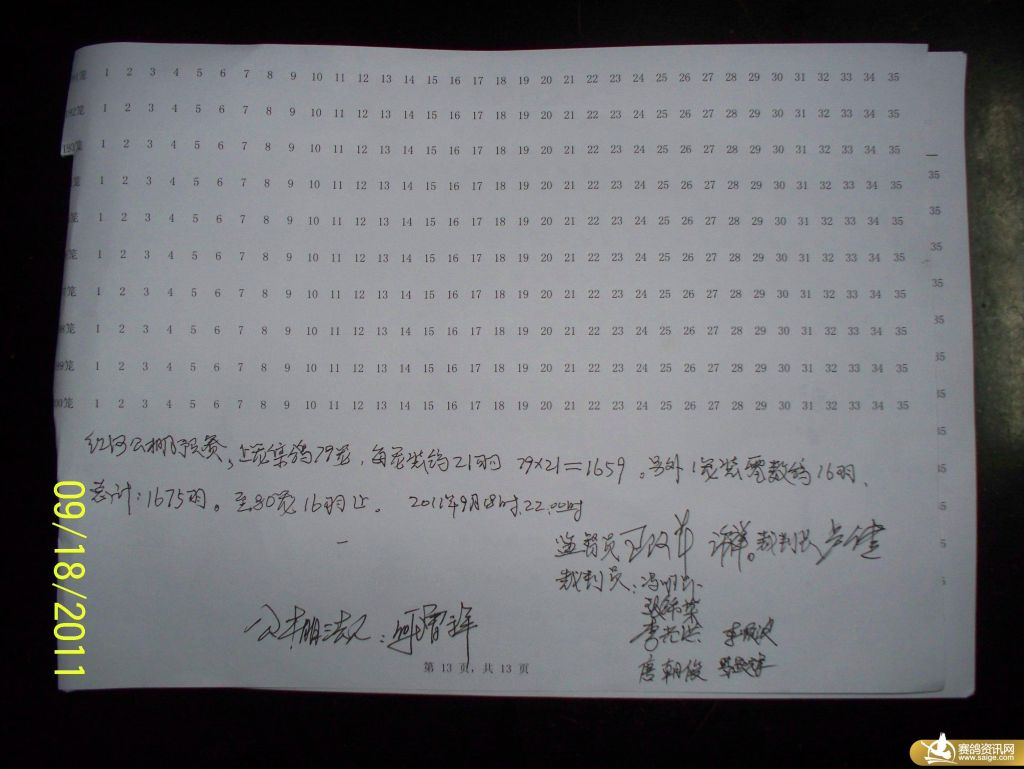 1 2 3 4 5 6 7 8 9 10 11 12 13 14 15 16 17 18 19 20 21 22 23 24 25 26 27 28 29 30 31 32 33 34 35
1 2 3 4 5 6 7 8 9 10 11 12 13 14 15 16 17 18 19 20 21 22 23 24 25 26 27 28 29 30 31 32 33 34 35
193笼 1 2 3 4 5 6 7 8 9 10 11 12 13 14 15 16 17 18 19 20 21 22 23 24 25 26 27 28 29 30 31 32 33 34 35
笼 1 2 3 4 5 6 7 8 9 10 11 12 13 14 15 16 17 18 19 20 21 22 23 24 25 26 27 28 29 30 31 32 33 34 35 35
笼 1 2 3 4 5 6 7 8 9 10 11 12 13 14 15 16 17 18 19 20 21 22 23 24 25 26 27 28 29 30 31 32 33 34 35 35
笼 1 2 3 4 5 6 7 8 9 10 11 12 13 14 15 16 17 18 19 20 21 22 23 24 25 26 27 28 29 30 31 32 33 34 35 35
7笼 1 2 3 4 5 6 7 8 9 10 11 12 13 14 15 16 17 18 19 20 21 22 23 24 25 26 27 28 29 30 31 32 33 34 35 35
98笼 1 2 3 4 5 6 7 8 9 10 11 12 13 14 15 16 17 18 19 20 21 22 23 24 25 26 27 28 29 30 31 32 33 34 35 35
99笼 1 2 3 4 5 6 7 8 9 10 11 12 13 14 15 16 17 18 19 20 21 22 23 24 25 26 27 28 29 30 31 32 33 34 35 35
00笼 1 2 3 4 5 6 7 8 9 10 11 12 13 14 15 16 17 18 19 20 21 22 23 24 25 26 27 28 29 30 31 32 33 34 35 35
红河公棚预赛，上笼集鸽79笼，每笼装鸽21羽 79×21=1659。另外1笼装零数鸽16羽、
总计：1675羽。至80笼16羽止。 2011年9月18时.22:00时
监督员 裁判长 卢健
裁判员：冯明
李光洪
公棚法人：何曾祥
唐朝俊
第 13 页，共 13 页
09/18/2011
赛鸽资讯网
www.saige.com